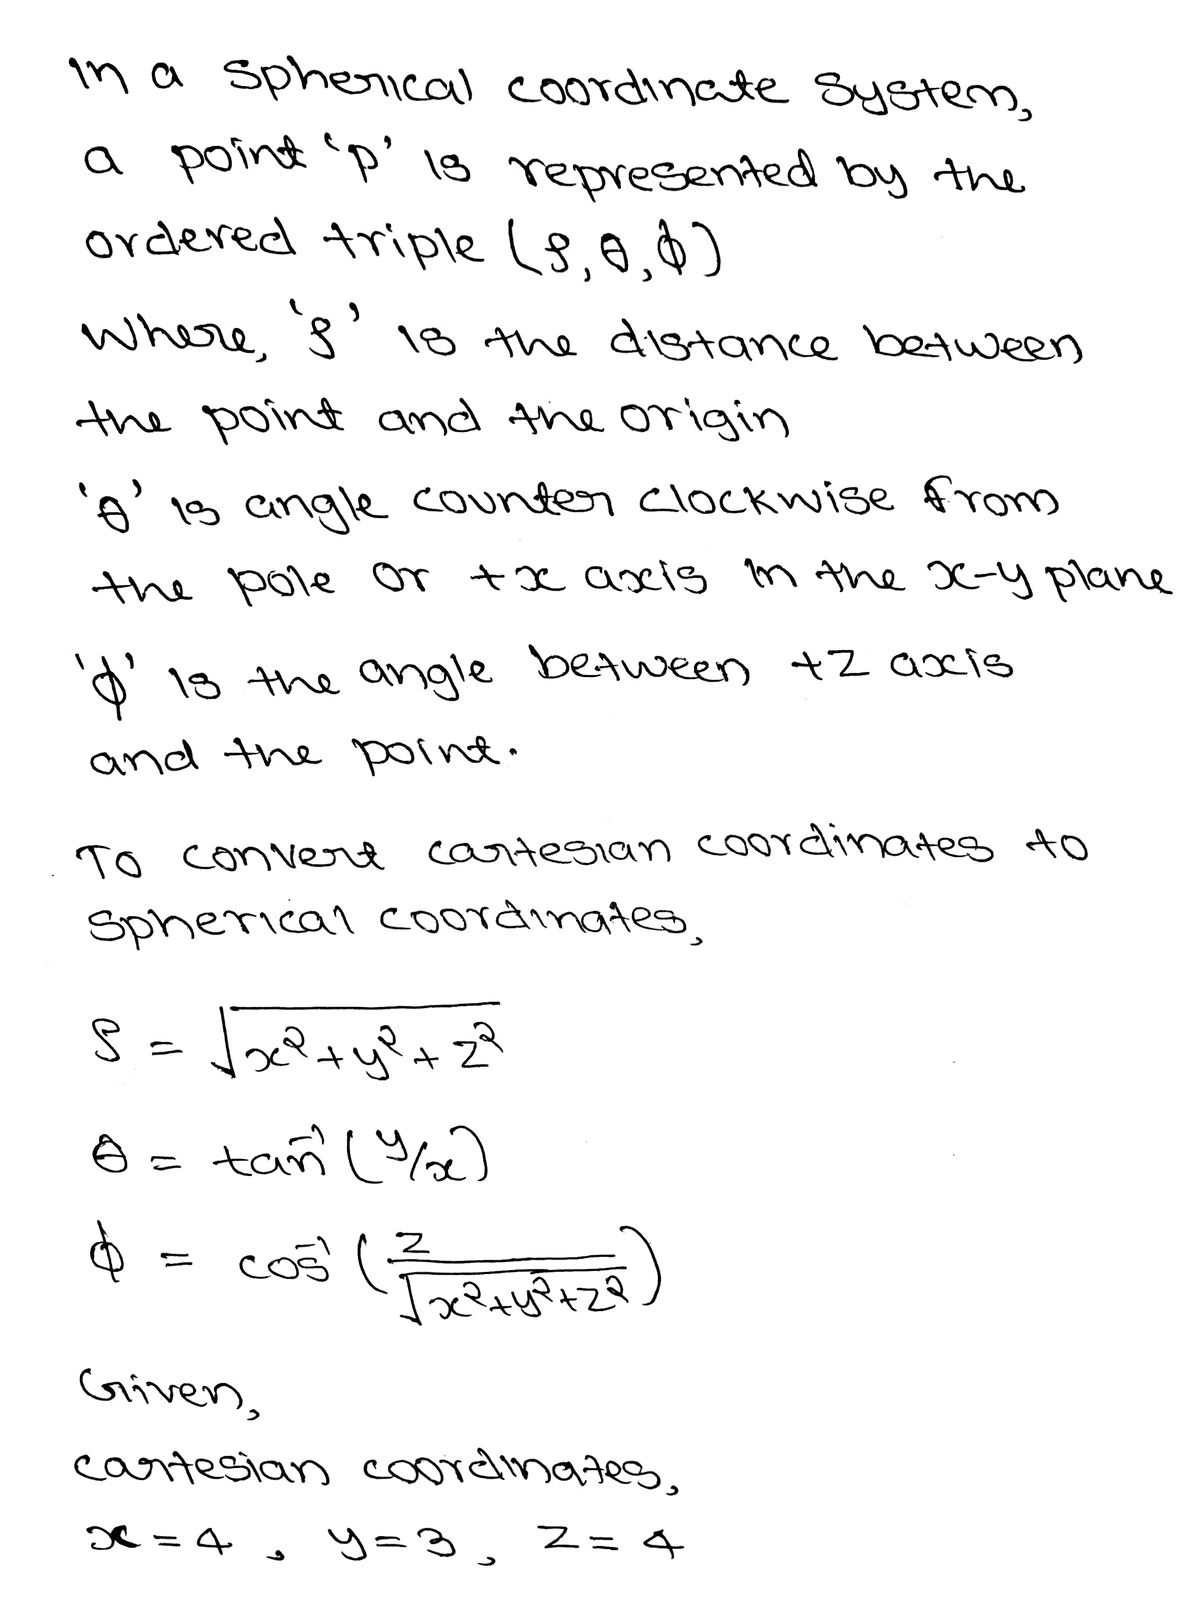 In a spherical coordinate system,
a point 'p' is represented by the
ordered triple (ρ, θ, ϕ)
Where, 'ρ' is the distance between
the point and the origin
'θ' is angle counter clockwise from
the pole or +x axis in the x-y plane
'ϕ' is the angle between +z axis
and the point.
To convert cartesian coordinates to
spherical coordinates,
ρ = √(x²+y²+z²)
θ = tan⁻¹(y/x)
ϕ = cos⁻¹(z/√(x²+y²+z²))
Given,
cartesian coordinates,
x = 4, y = 3, z = 4